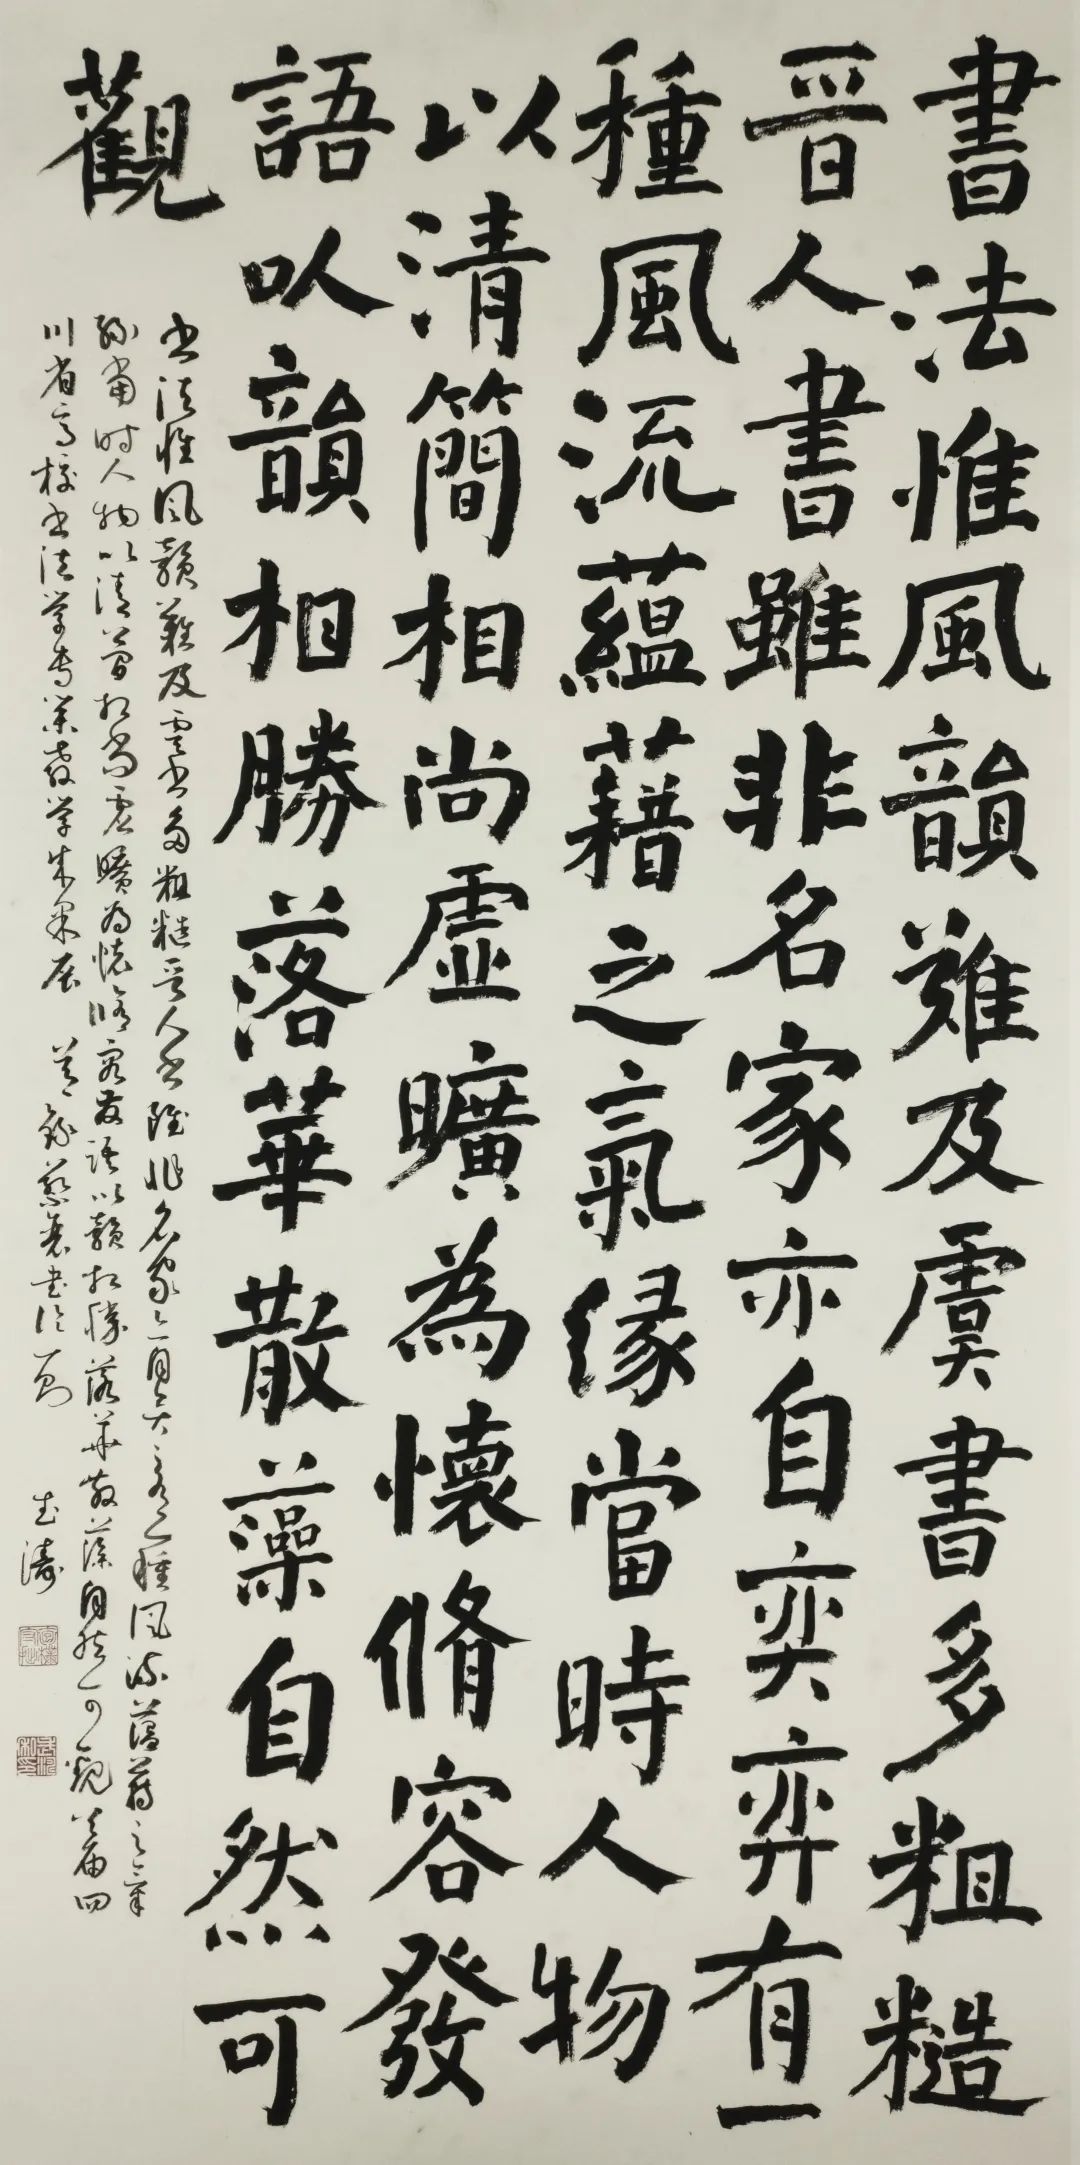 書法惟風韻難及虞書多粗糙
晉人書雖非名家亦自奕弈有一
種風流蘊藉之氣緣當時人物
以清簡相尚虛曠為懷脩容發
語以韻相勝落華散藻自然可
觀
书法惟風韻難及虞书多粗糙晉人书雖非名家亦自奕奕有一種風流蘊藉之氣
緣當时人物以清簡相尚虛曠為懷脩容發語以韻相勝落華散藻自然可觀届四
川省高校书法学专業教学成果展 武濤